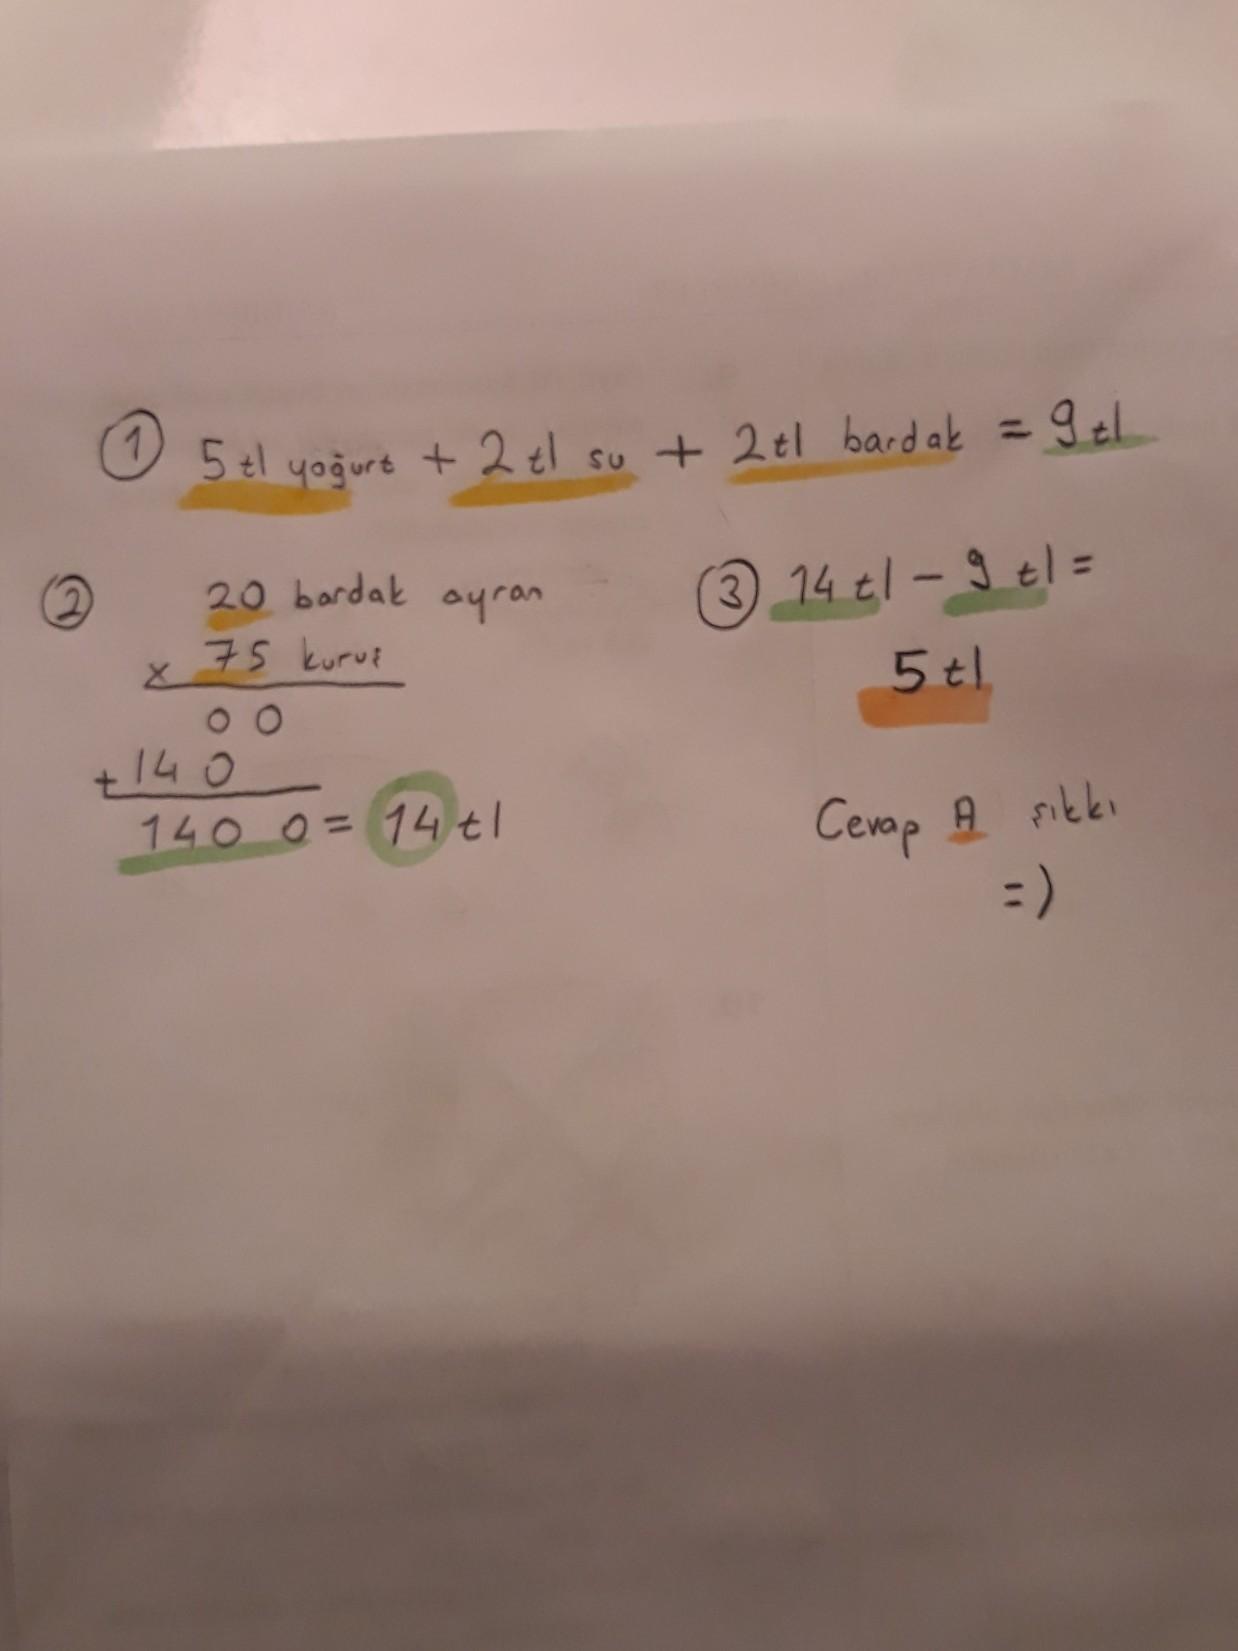 ① 5 tl yoğurt + 2 tl su + 2 tl bardak = 9 tl
② 20 bardak ayran
x 75 kuruş
00
+ 140
1400 = 14 tl
③ 14 tl - 9 tl =
5 tl
Cevap A şıkkı
=)